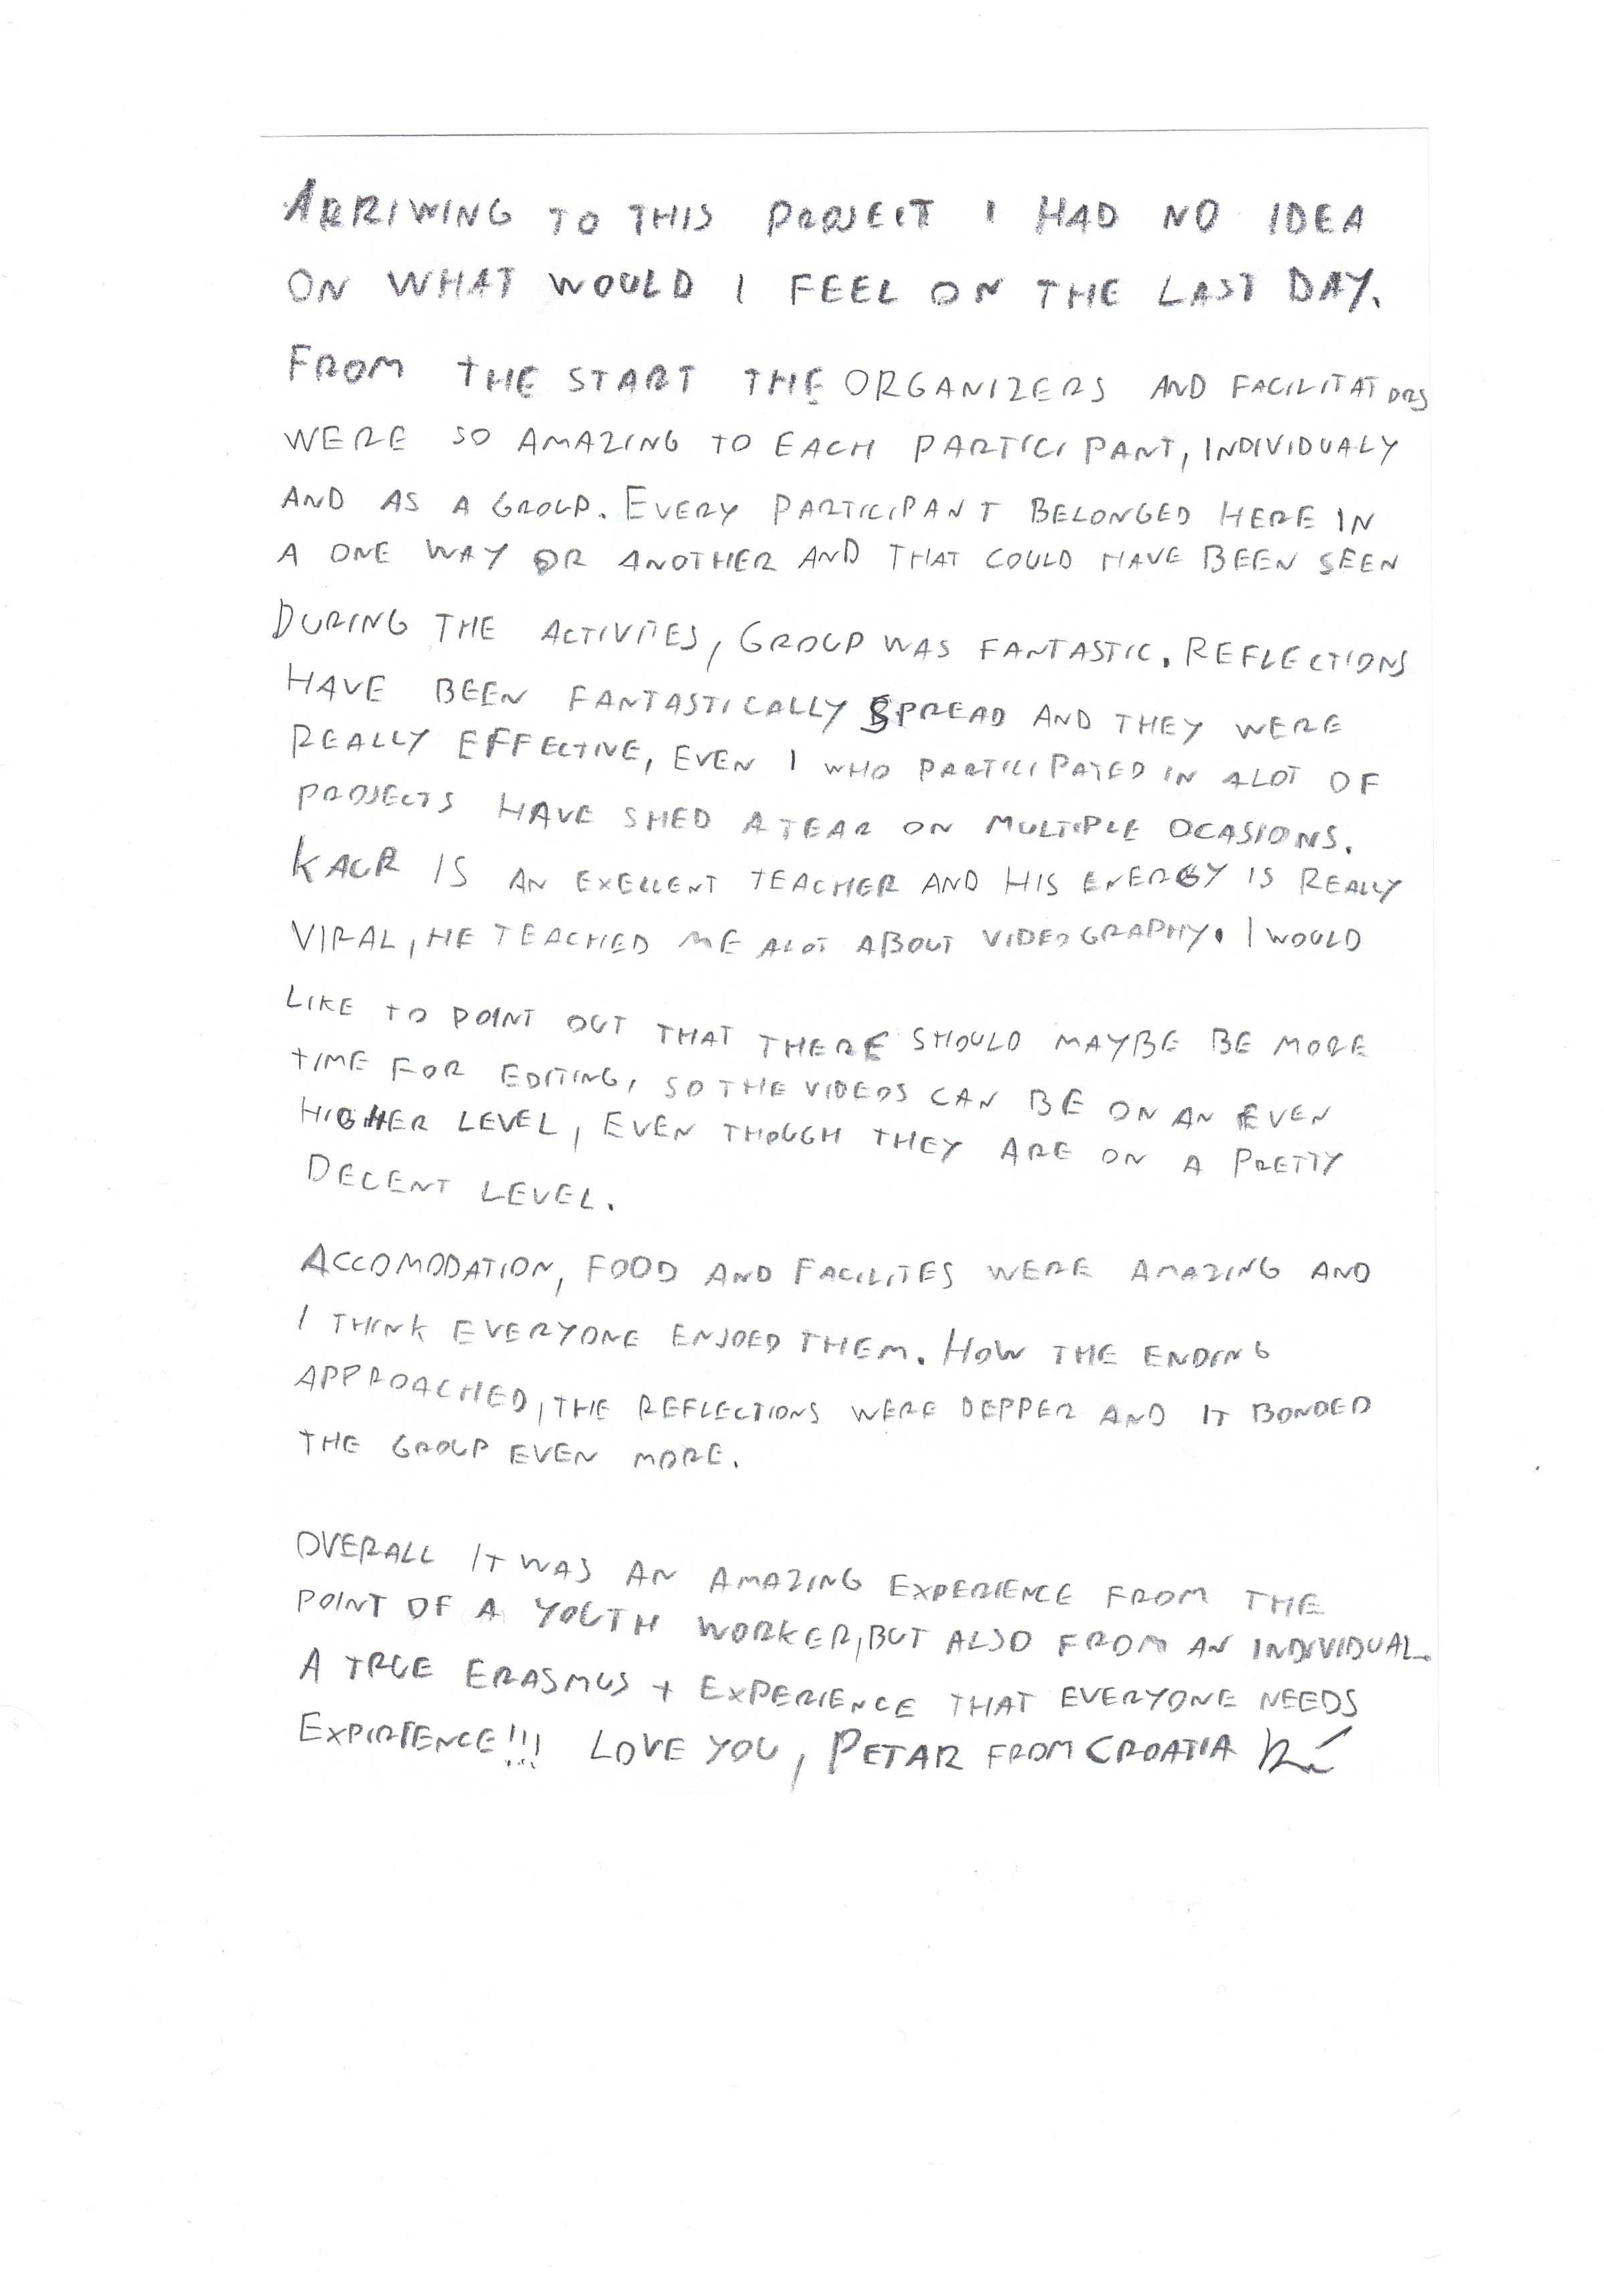 ARRIWING TO THIS PROJECT I HAD NO IDEA
ON WHAT WOULD I FEEL ON THE LAST DAY.
FROM THE START THE ORGANIZERS AND FACILITATORS
WERE SO AMAZING TO EACH PARTICIPANT, INDIVIDUALY
AND AS A GROUP. EVERY PARTICIPANT BELONGED HERE IN
A ONE WAY OR ANOTHER AND THAT COULD HAVE BEEN SEEN
DURING THE ACTIVITES, GROUP WAS FANTASTIC. REFLECTIONS
HAVE BEEN FANTASTICALLY SPREAD AND THEY WERE
REALLY EFFECTIVE, EVEN I WHO PARTICIPATED IN ALOT OF
PROJECTS HAVE SHED A TEAR ON MULTIPLE OCASIONS.
KACR IS AN EXELLENT TEACHER AND HIS ENERGY IS REALLY
VIRAL, HE TEACHED ME ALOT ABOUT VIDEOGRAPHY. I WOULD
LIKE TO POINT OUT THAT THERE SHOULD MAYBE BE MORE
TIME FOR EDITING, SO THE VIDEOS CAN BE ON AN EVEN
HIGHER LEVEL, EVEN THOUGH THEY ARE ON A PRETTY
DECENT LEVEL.
ACCOMODATION, FOOD AND FACILITES WERE AMAZING AND
I THINK EVERYONE ENJOED THEM. HOW THE ENDING
APPROACHED, THE REFLECTIONS WERE DEPPER AND IT BONDED
THE GROUP EVEN MORE.
OVERALL IT WAS AN AMAZING EXPERIENCE FROM THE
POINT OF A YOUTH WORKER, BUT ALSO FROM AN INDIVIDUAL.
A TRUE ERASMUS + EXPERIENCE THAT EVERYONE NEEDS
EXPIRIENCE!!! LOVE YOU, PETAR FROM CROATIA